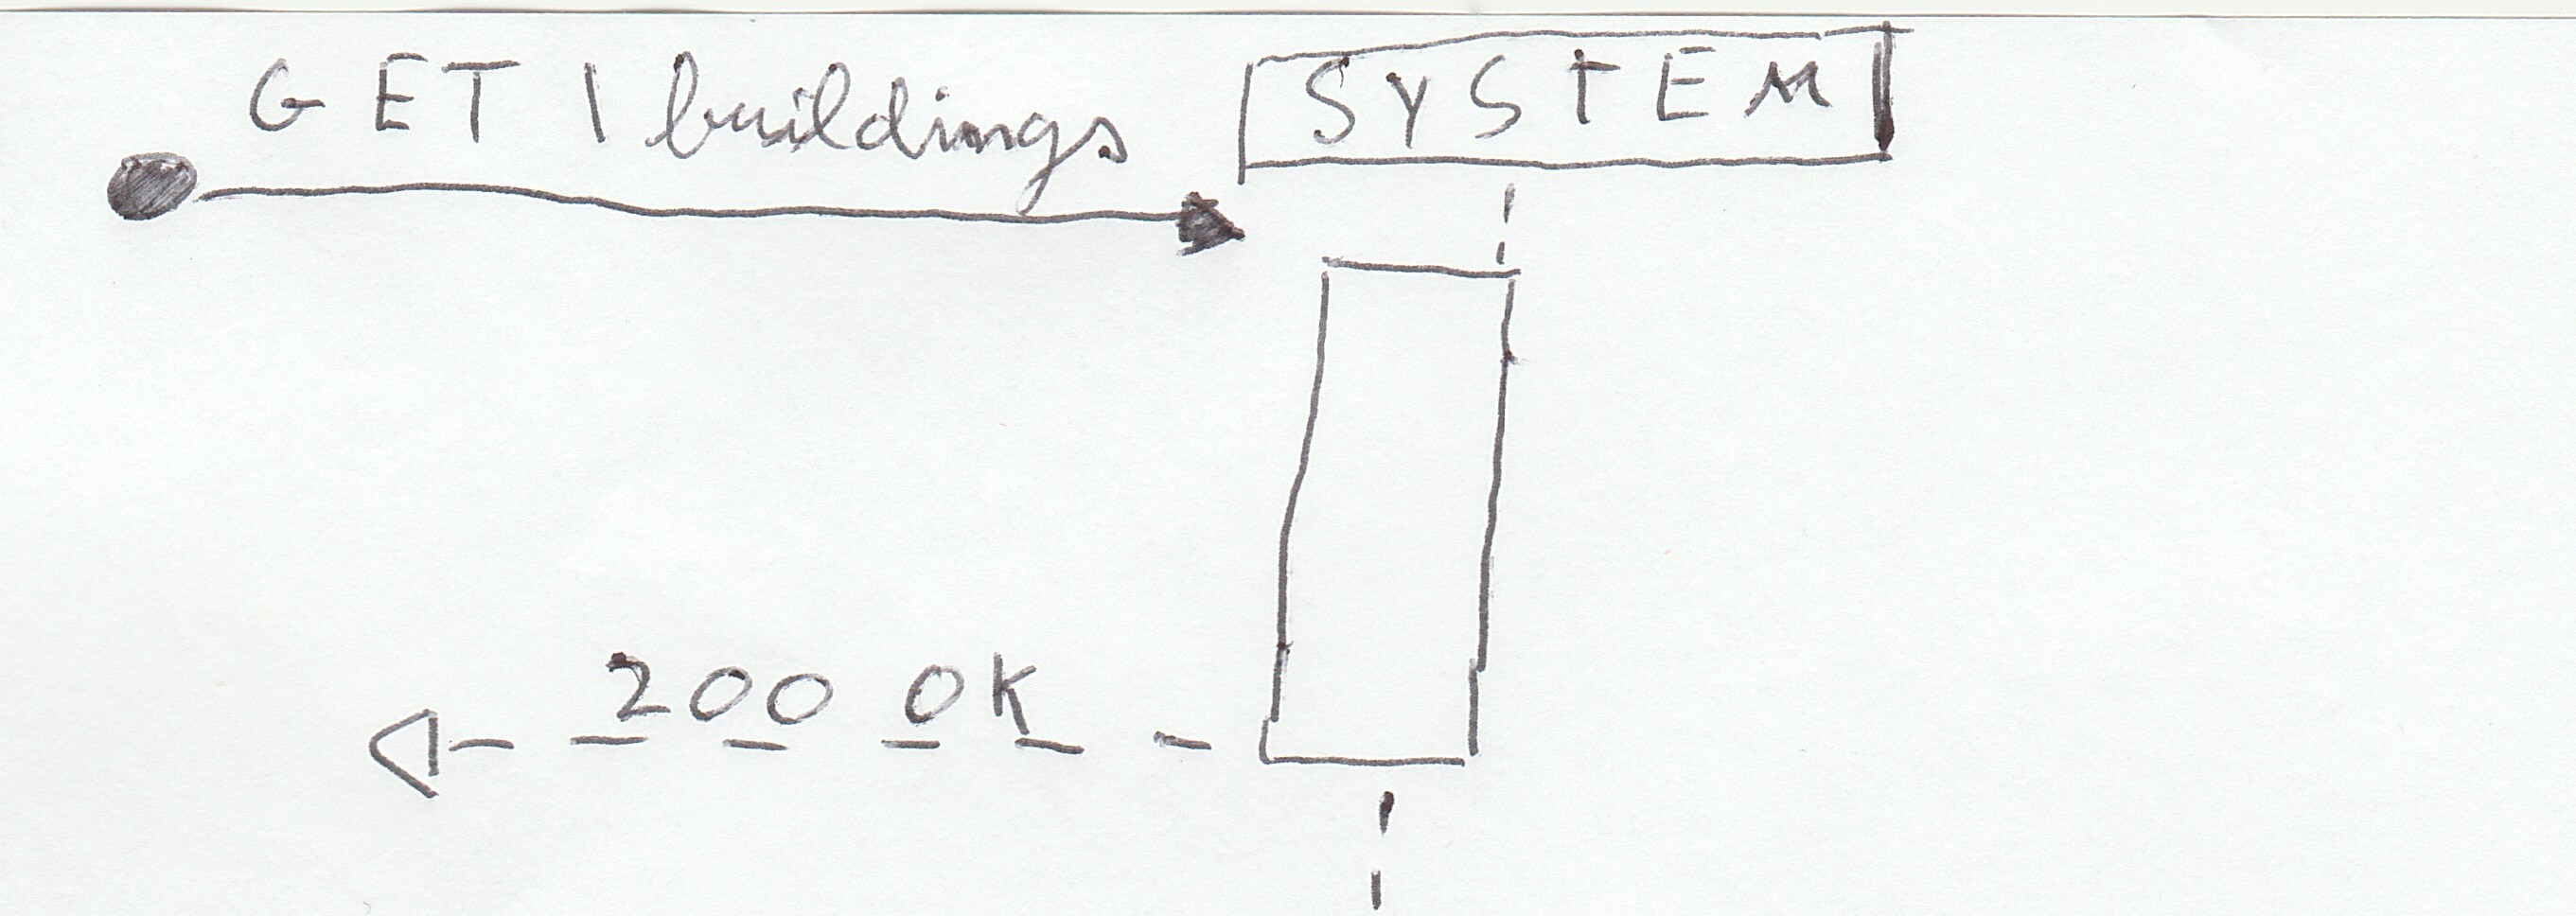 GET /buildings
SYSTEM
200 OK